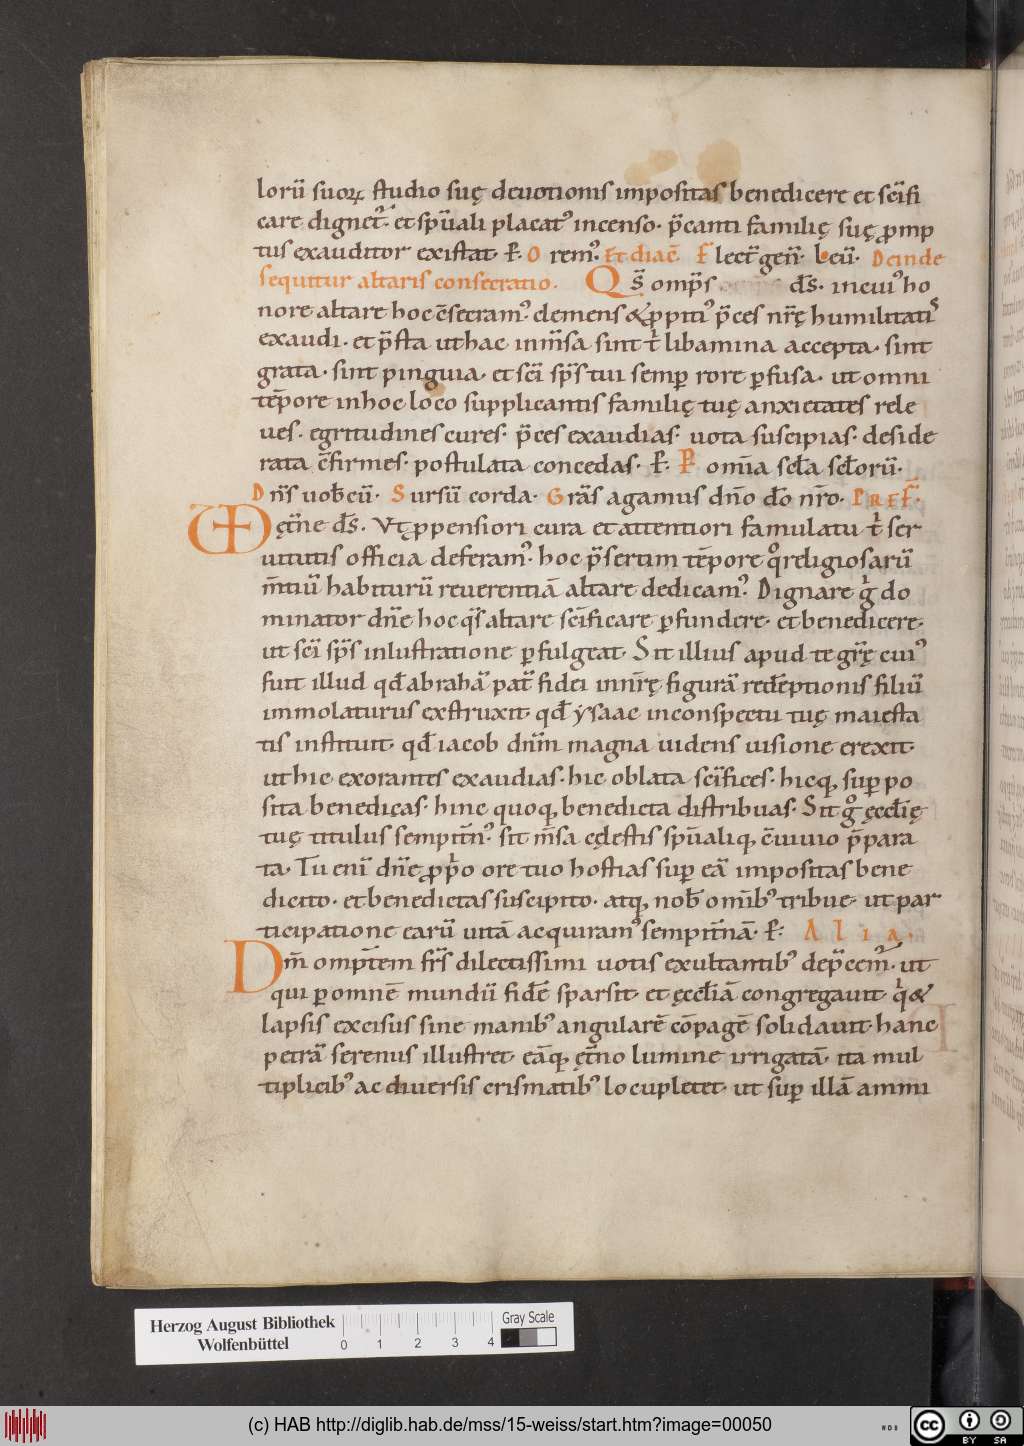 lorū suoꝝ studio suę deuotionis impositas benedicere et sc̄ifi
care dignet᷒. et sp̄uali placat᷒ incenso. p̄canti familię suę ꝓmp
tus exauditor existat. P̄. Orem᷒. Et diac̄. Flect̄ gen̄. Leū. Deinde
sequitur altaris consecratio. Qs̄ omp̄s ds̄. in cui᷒ ho
nore altare hoc c̄secram᷒. clemens & ꝓpiti᷒ p̄ces nr̄ę humilitatis
exaudi. et p̄sta ut hac in m̄sa sint t̄ libamina accepta. sint
grata. sint pinguia. et sc̄i sp̄s tui semꝑ rore ꝑfusa. ut omni
tēpore in hoc loco supplicantis familię tuę anxietates rele
ues. egritudines cures. p̄ces exaudias. uota suscipias. deside
rata c̄firmes. postulata concedas. P̄. P̄ om̄ia sc̄la sc̄lorū.
Dn̄s uob̄cū. Sursū corda. Grās agamus dn̄o d̄o nr̄o. PREF̄.
VD ęt̄ne ds̄. Vt ꝓpensiori cura et attentiori famulatu t̄ ser
uitutis officia deferam᷒. hoc p̄sertim tēpore q̊ religiosarū
m̄tiū habiturū reuerentiā altare dedicam᷒. Dignare g̊ do
minator dn̄e hoc q̄s altare sc̄ificare ꝑfundere. et benedicere.
ut sc̄i sp̄s inlustratione ꝑfulgeat. Sit illius apud te gr̄ę cui᷒
fuit illud qd̄ abrahā pat̄ fidei in nr̄ę figurā redēptionis filiū
immolaturus extruxit. qd̄ ysaac in conspectu tuę maiesta
tis instituit. qd̄ iacob dn̄m magna uidens uisione erexit.
ut hic exorantes exaudias. hic oblata sc̄ifices. hicq, suꝑpo
sita benedicas. hinc quoq, benedicta distribuas. Sit g̊ ęccl̄ię
tuę titulus sempit̄n᷒. sit m̄sa cęlestis sp̄ualiq, c̄uiuio p̄para
ta. Tu enī dn̄e ꝓpo ore tuo hostias suꝑ eā impositas bene
dicito. et benedictas suscipito. atq, nob̄ omīb᷒ tribue. ut par
ticipatione earū uitā acquiram᷒ sempit̄nā. P̄. Alia.
Dm̄ omp̄tem fr̄s dilectissimi uotis exultantib᷒ dep̄cem᷒. ut
qui ꝑ omnē mundū fidē sparsit. et ęccl̄iā congregauit. q̄ &
lapsis excisus sine manib᷒ angularē cōpagē solidauit. hanc
petrā serenus illustret. eāq, ęt̄no lumine irrigatā. ita mul
tiplicib᷒ ac diuersis crismatib᷒ locupletet. ut suꝑ illā animi
Herzog August Bibliothek
Wolfenbüttel
0 1 2 3 4
Gray Scale
(c) HAB http://diglib.hab.de/mss/15-weiss/start.htm?image=00050
cc BY SA